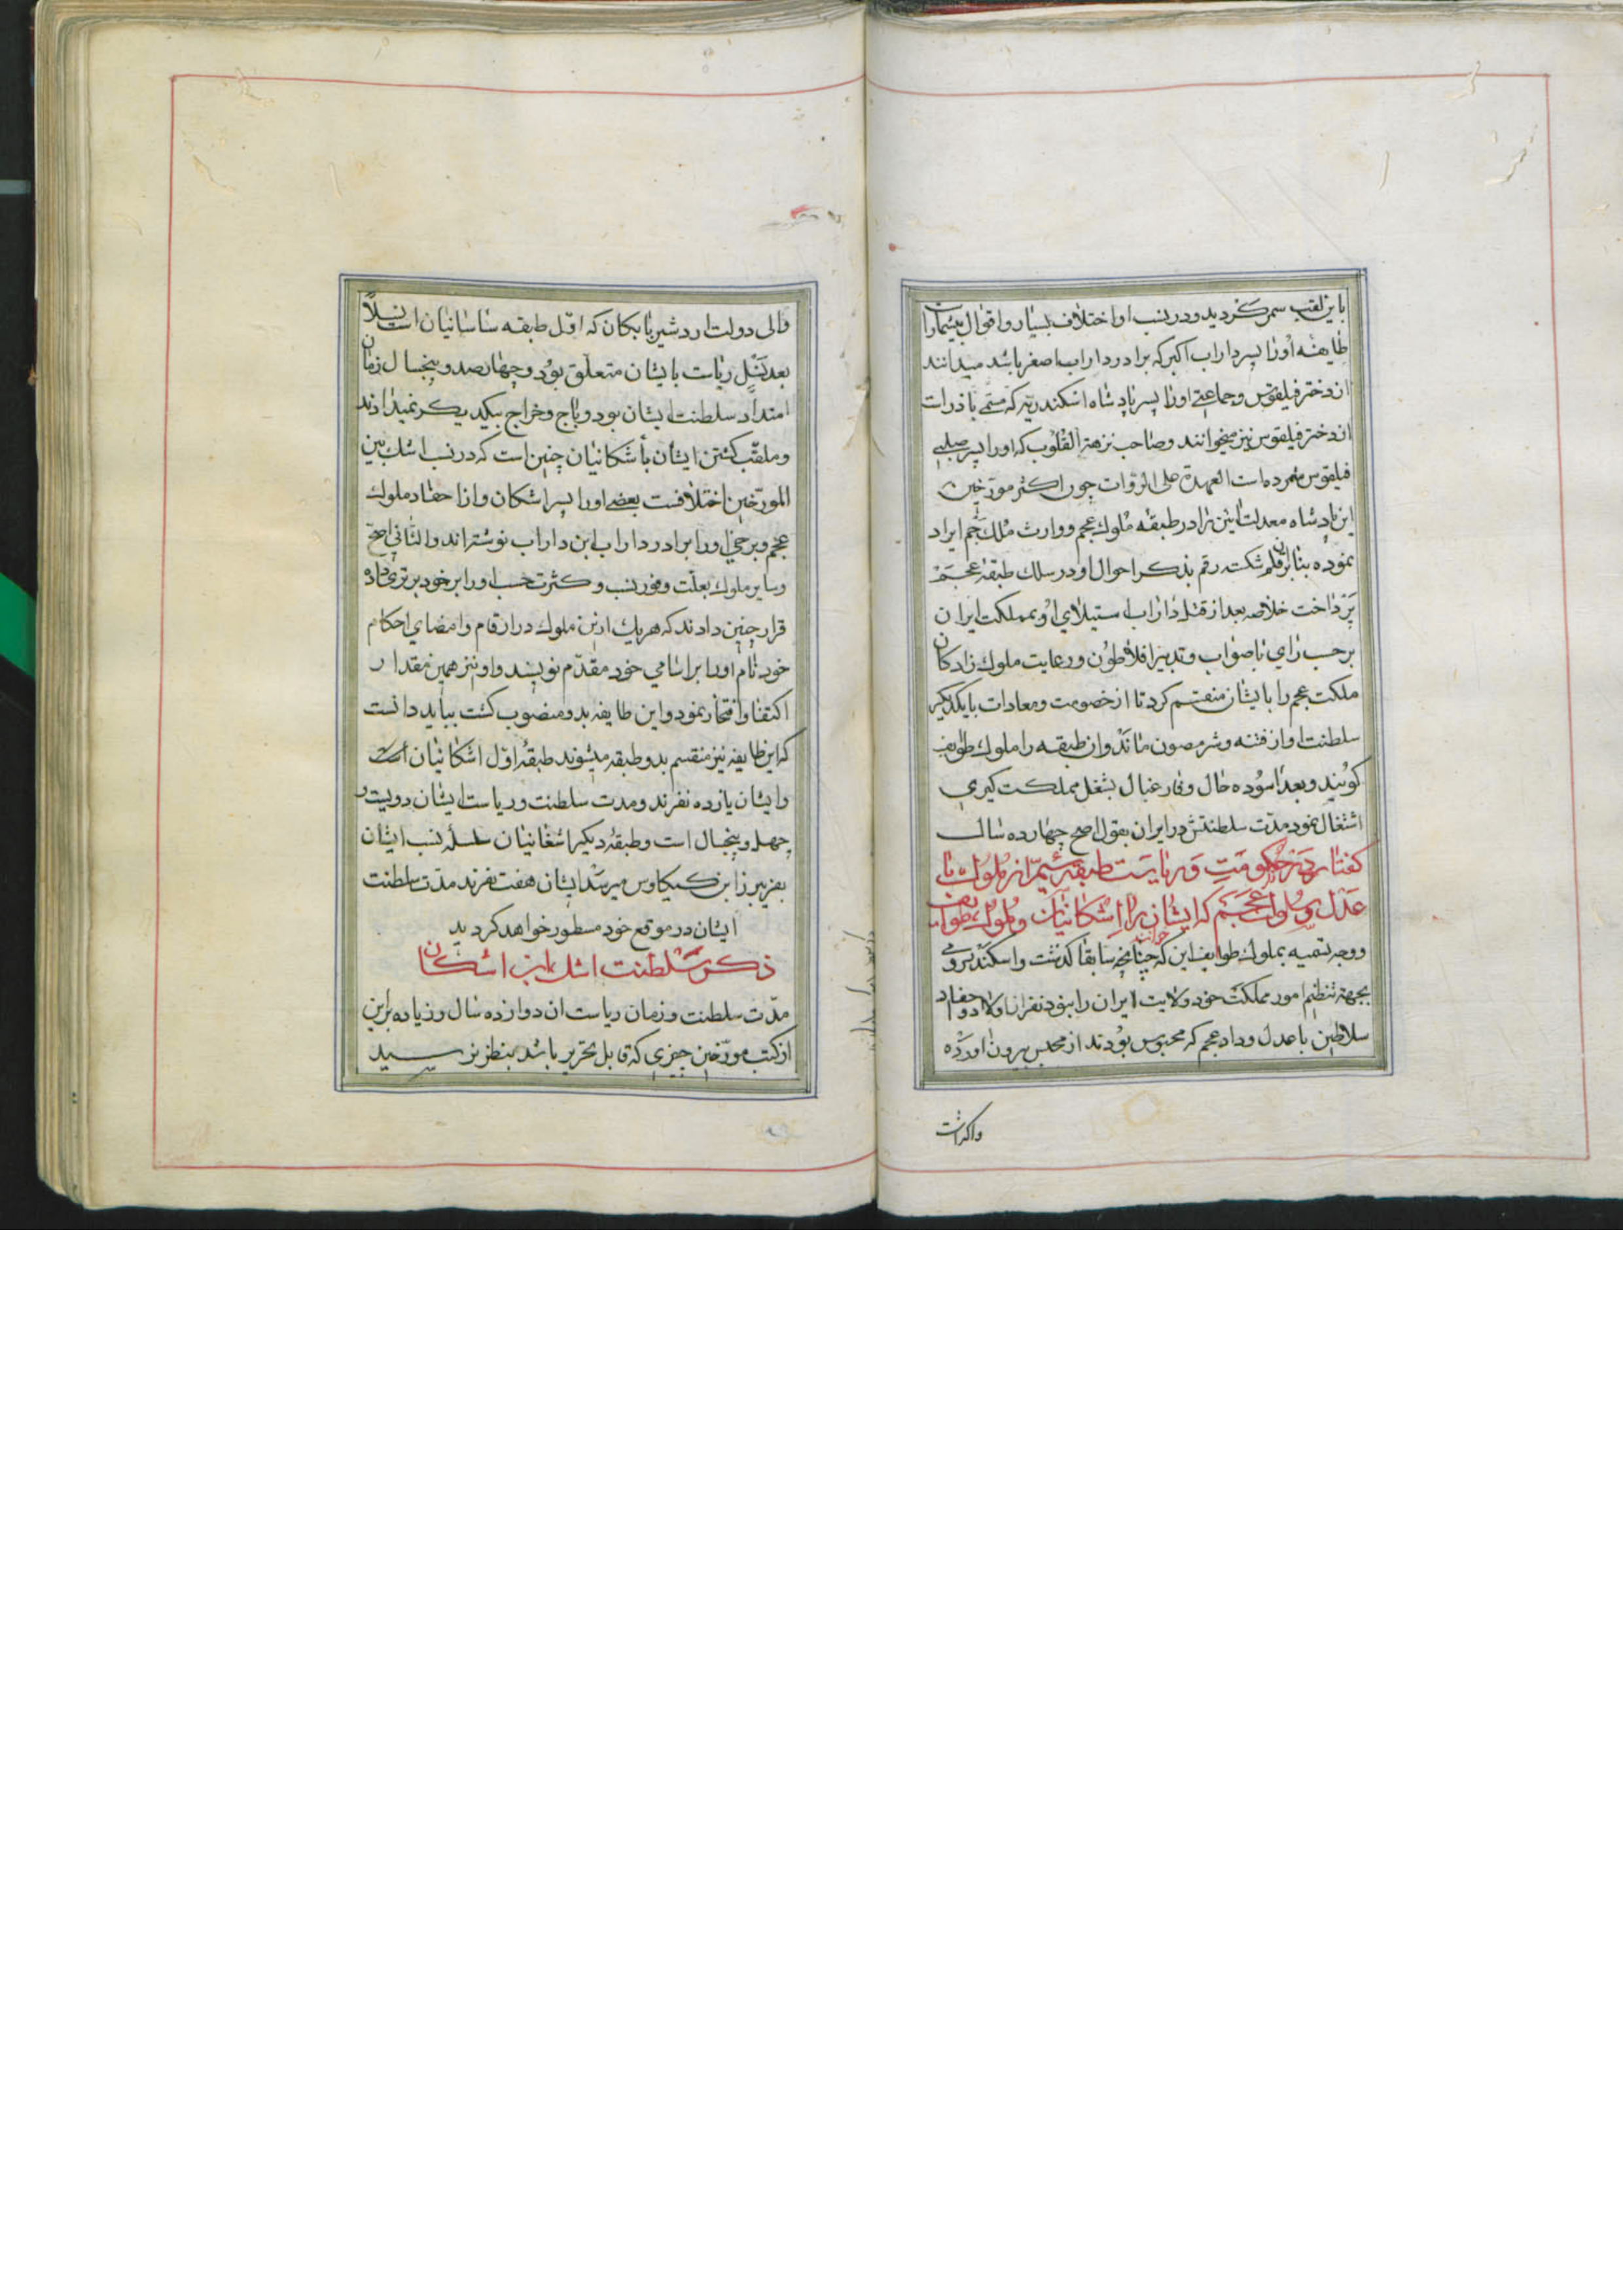 باین لقب سمر کردید و در نسب او اختلاف بسیار و اقوال بیشمار است
طایفه اورا پسر داراب اکبر که برادر داراب اصغر باشد میدانند
از دختر فیلقوس و جماعتی اورا پسر پادشاه اسکندریه که مسمی باذرات
از دختر فیلقوس نیز میخوانند و صاحب نزهة القلوب که اورا پسر صلبی
فیلقوس شمرده است العهدة علی الرواة چون اکثر مورخین
این پادشاه معدلت ائین را در طبقه ملوک عجم و وارث ملک جم ایراد
نموده بنابران قلم شکسته رقم بذکر احوال او در سلک طبقه عجم
پرداخت خلاصه بعد از قتل داراب استیلای او بمملکت ایران
برحسب رای با صواب و تدبیر افلاطون و رعایت ملوک زادکان
ملکت عجم را بایشان منقسم کرد تا از خصومت و معادات با یکدیکر
سلطنت او از فتنه و شر مصون ماند و ان طبقه را ملوک طوایف
کویند و بعد اسوده حال و فارغبال بشغل مملکت کیری
اشتغال نمود مدت سلطنتش در ایران بقول اصح چهارده سال
کفتار در حکومت و ریاست طبقه سیم از ملوک با
عدل و ملوک عجم که ایشان را اشکانیان و ملوک طوایف خوانند
و وجه تسمیه بملوک طوایف این که چنانچه سابقا کذشت و اسکندر رومی
بجهة تنظیم امور مملکت خود ولایت ایران را بنود نفر از اولاد و احفاد
سلاطین با عدل و داد عجم که محبوس بودند از محبس بیرون اورده
واکذاشت
والی دولت اردشیر بابکان که اول طبقه ساسانیان است نسلاً
بعد نسل ریاست بایشان متعلق بود و چهارصد و پنجسال زمان
امتداد سلطنت ایشان بود و باج و خراج بیکدیکر نمیدادند
و ملقب کشتن ایشان باشکانیان چنین است که در نسب اشک بین
المورخین اختلافست بعضی اورا پسر اشکان و از احفاد ملوک
عجم و برخی اورا برادر داراب ابن داراب نوشته‌اند و الثانی اصح
و سایر ملوک بعلت وفور نسب و کثرت حسب اورا بر خود برتری داده
قرار چنین دادند که هریک از این ملوک در ارقام و امضای احکام
خود نام اورا بر اسامی خود مقدم نویسند و او نیز همین مقدار
اکتفا و افتخار نمود و این طایفه بدو منصوب کشت بباید دانست
که این طایفه نیز منقسم بدو طبقه میشوند طبقه اول اشکانیان است
و ایشان یازده نفرند و مدت سلطنت و ریاست ایشان دویست و
چهل و پنجسال است و طبقه دیکر اشغانیان سلسله نسب ایشان
بفریبرز ابن کیکاوس میرسد ایشان هفت نفرند مدت سلطنت
ایشان در موقع خود مسطور خواهد کردید
ذکر سلطنت اشک ابن اشکان
مدت سلطنت و زمان ریاست ان دوازده سال و زیاده براین
از کتب مورخین چیزی که قابل تحریر باشد بنظر نرسید